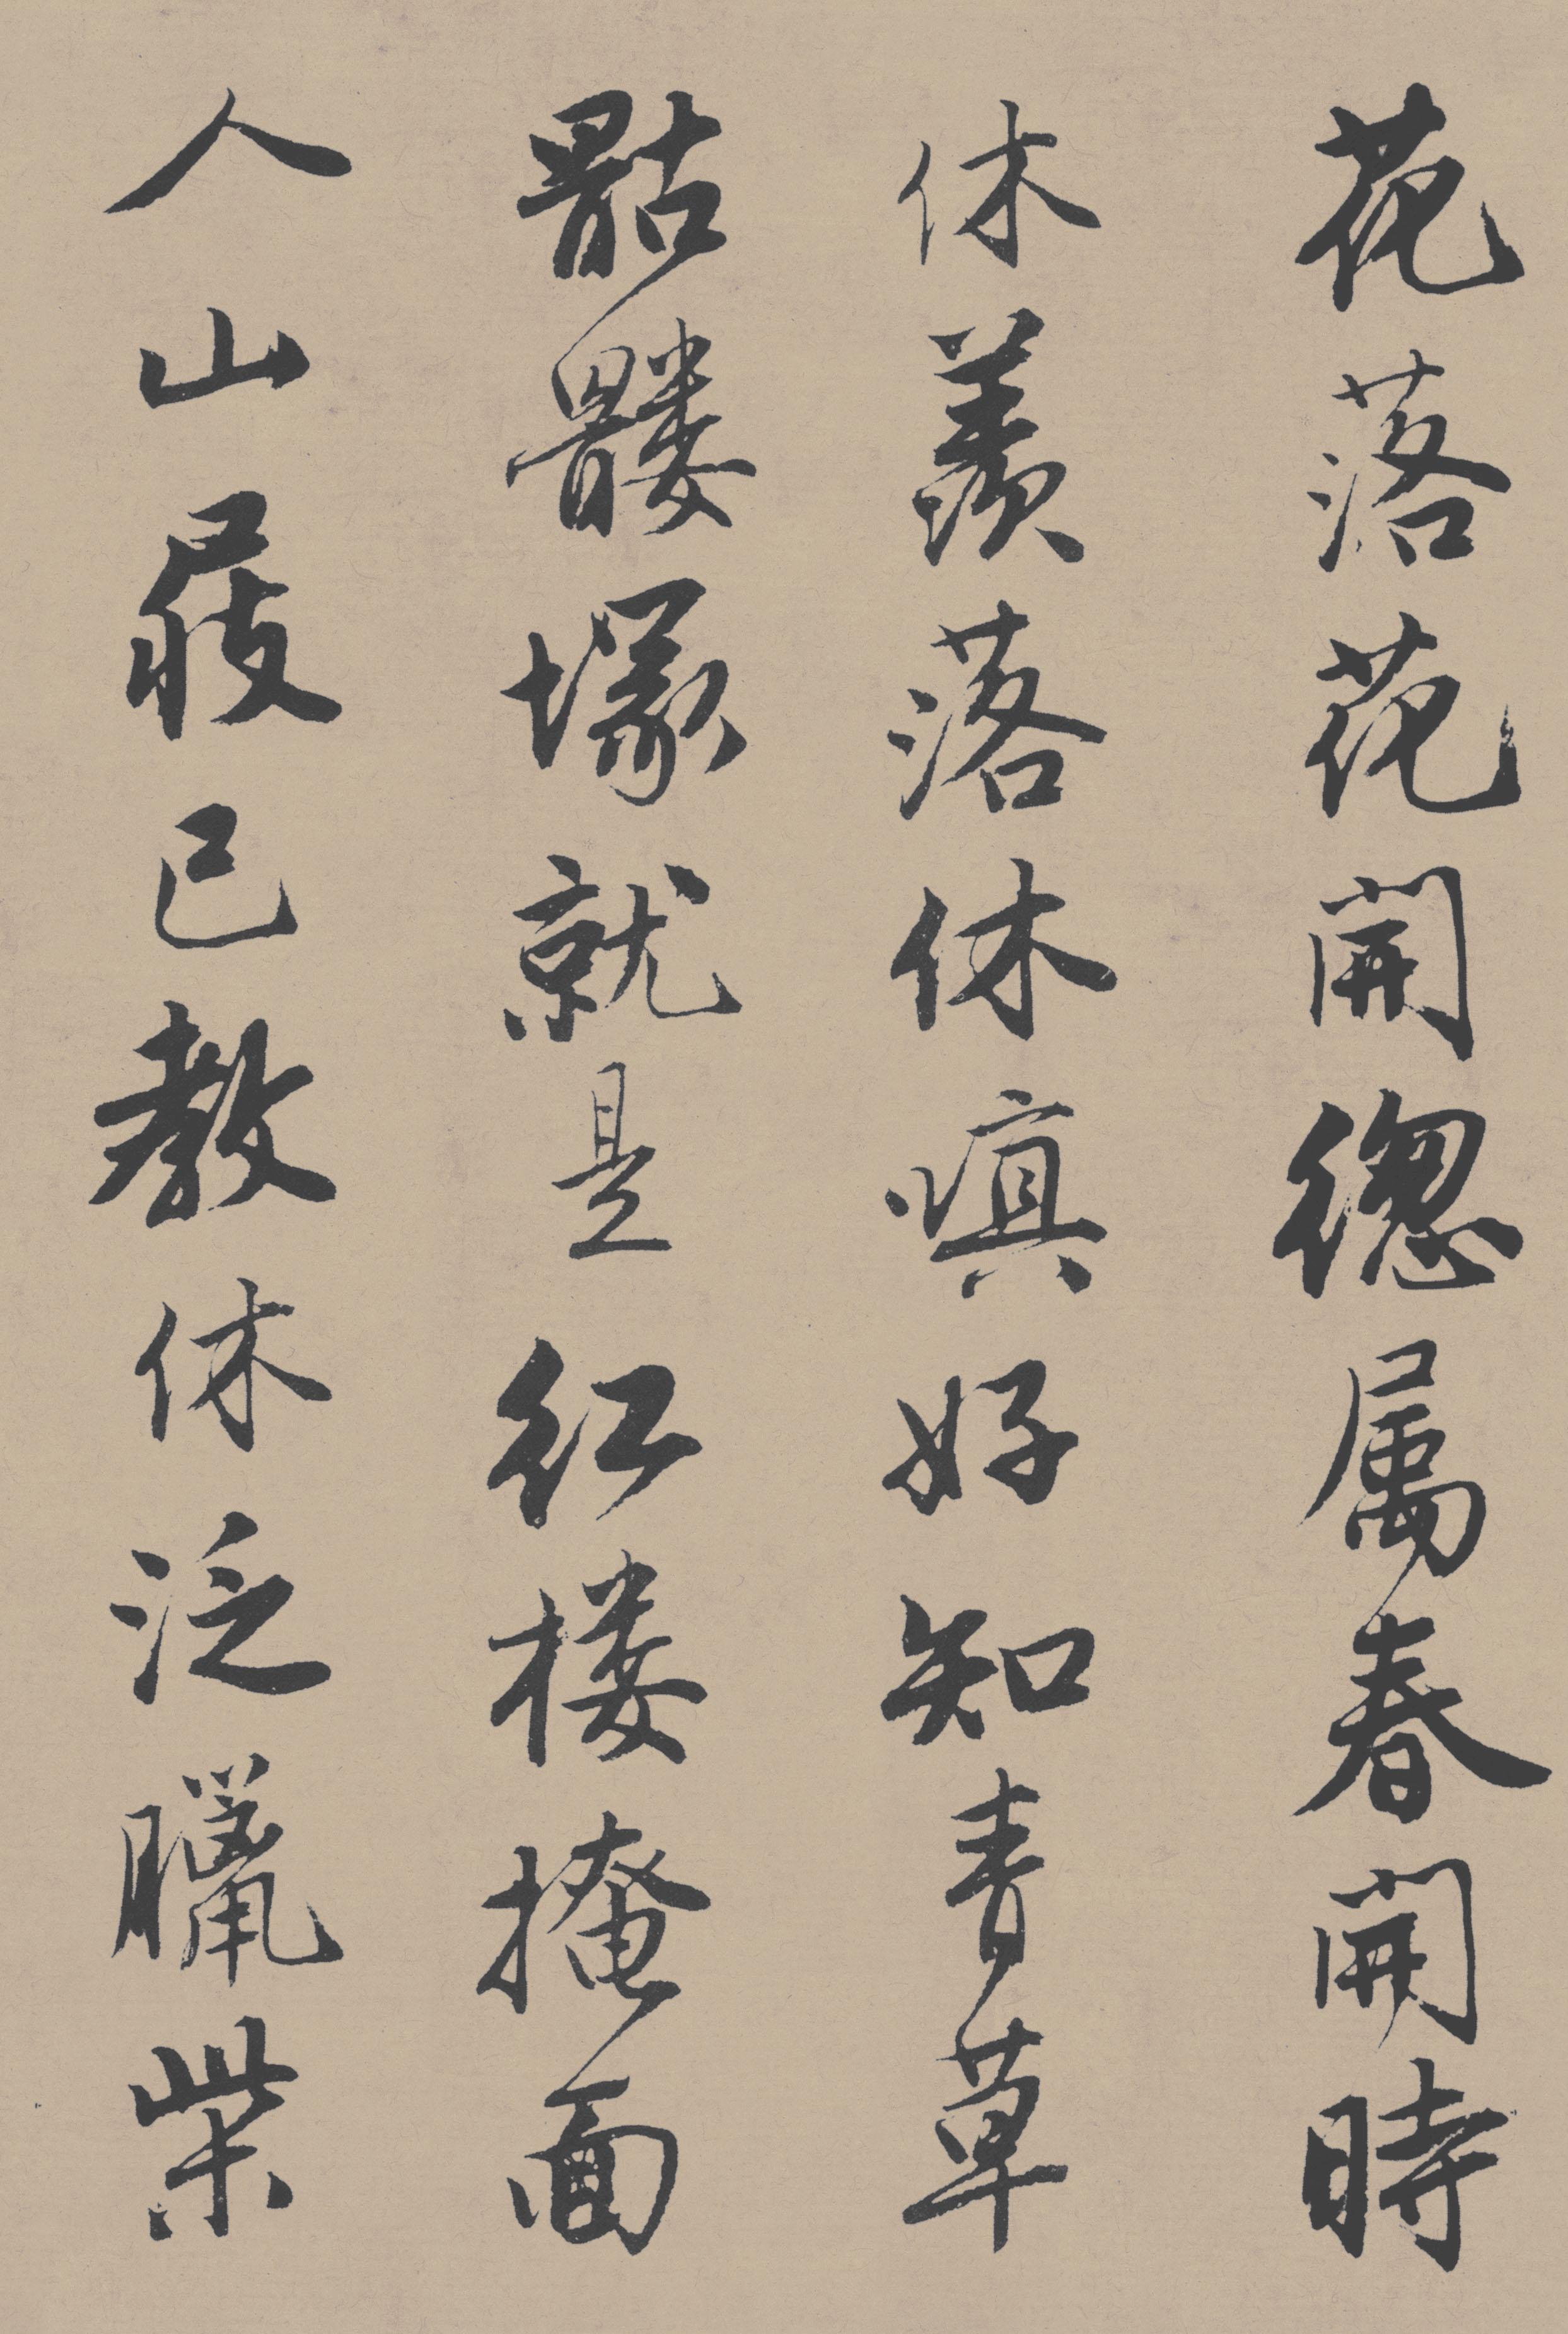 花落花開總屬春開時
休羨落休嗔好知青草
骷髏塚就是紅樓掩面
人山屐已教休泛臘柴